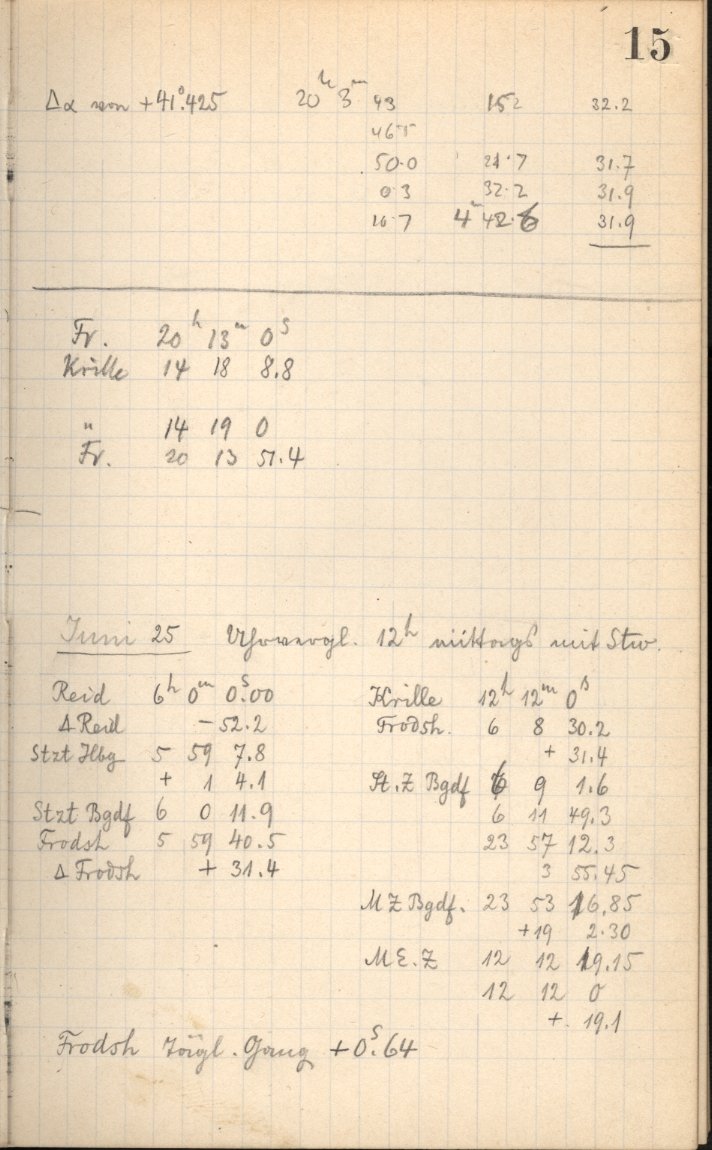 15
Δα von +41°.425 20h 3m 43 152 32.2
46.5
50.0 21.7 31.7
0.3 32.2 31.9
16.7 4m 42.6 31.9
Fr. 20h 13m 0s
Krille 14 18 8.8
" 14 19 0
Fr. 20 13 51.4
Juni 25 Uhrvergl. 12h mittags mit Stw.
Reid 6h 0m 0s.00
Δ Reid - 52.2
Stzt Hbg 5 59 7.8
+ 1 4.1
Stzt Bgdf 6 0 11.9
Frodsh 5 59 40.5
Δ Frodsh + 31.4
Krille 12h 12m 0s
Frodsh. 6 8 30.2
+ 31.4
St.Z Bgdf 6 9 1.6
6 11 49.3
23 57 12.3
3 55.45
M Z Bgdf. 23 53 16.85
+19 2.30
M.E.Z 12 12 19.15
12 12 0
+. 19.1
Frodsh Tägl. Gang +0s.64